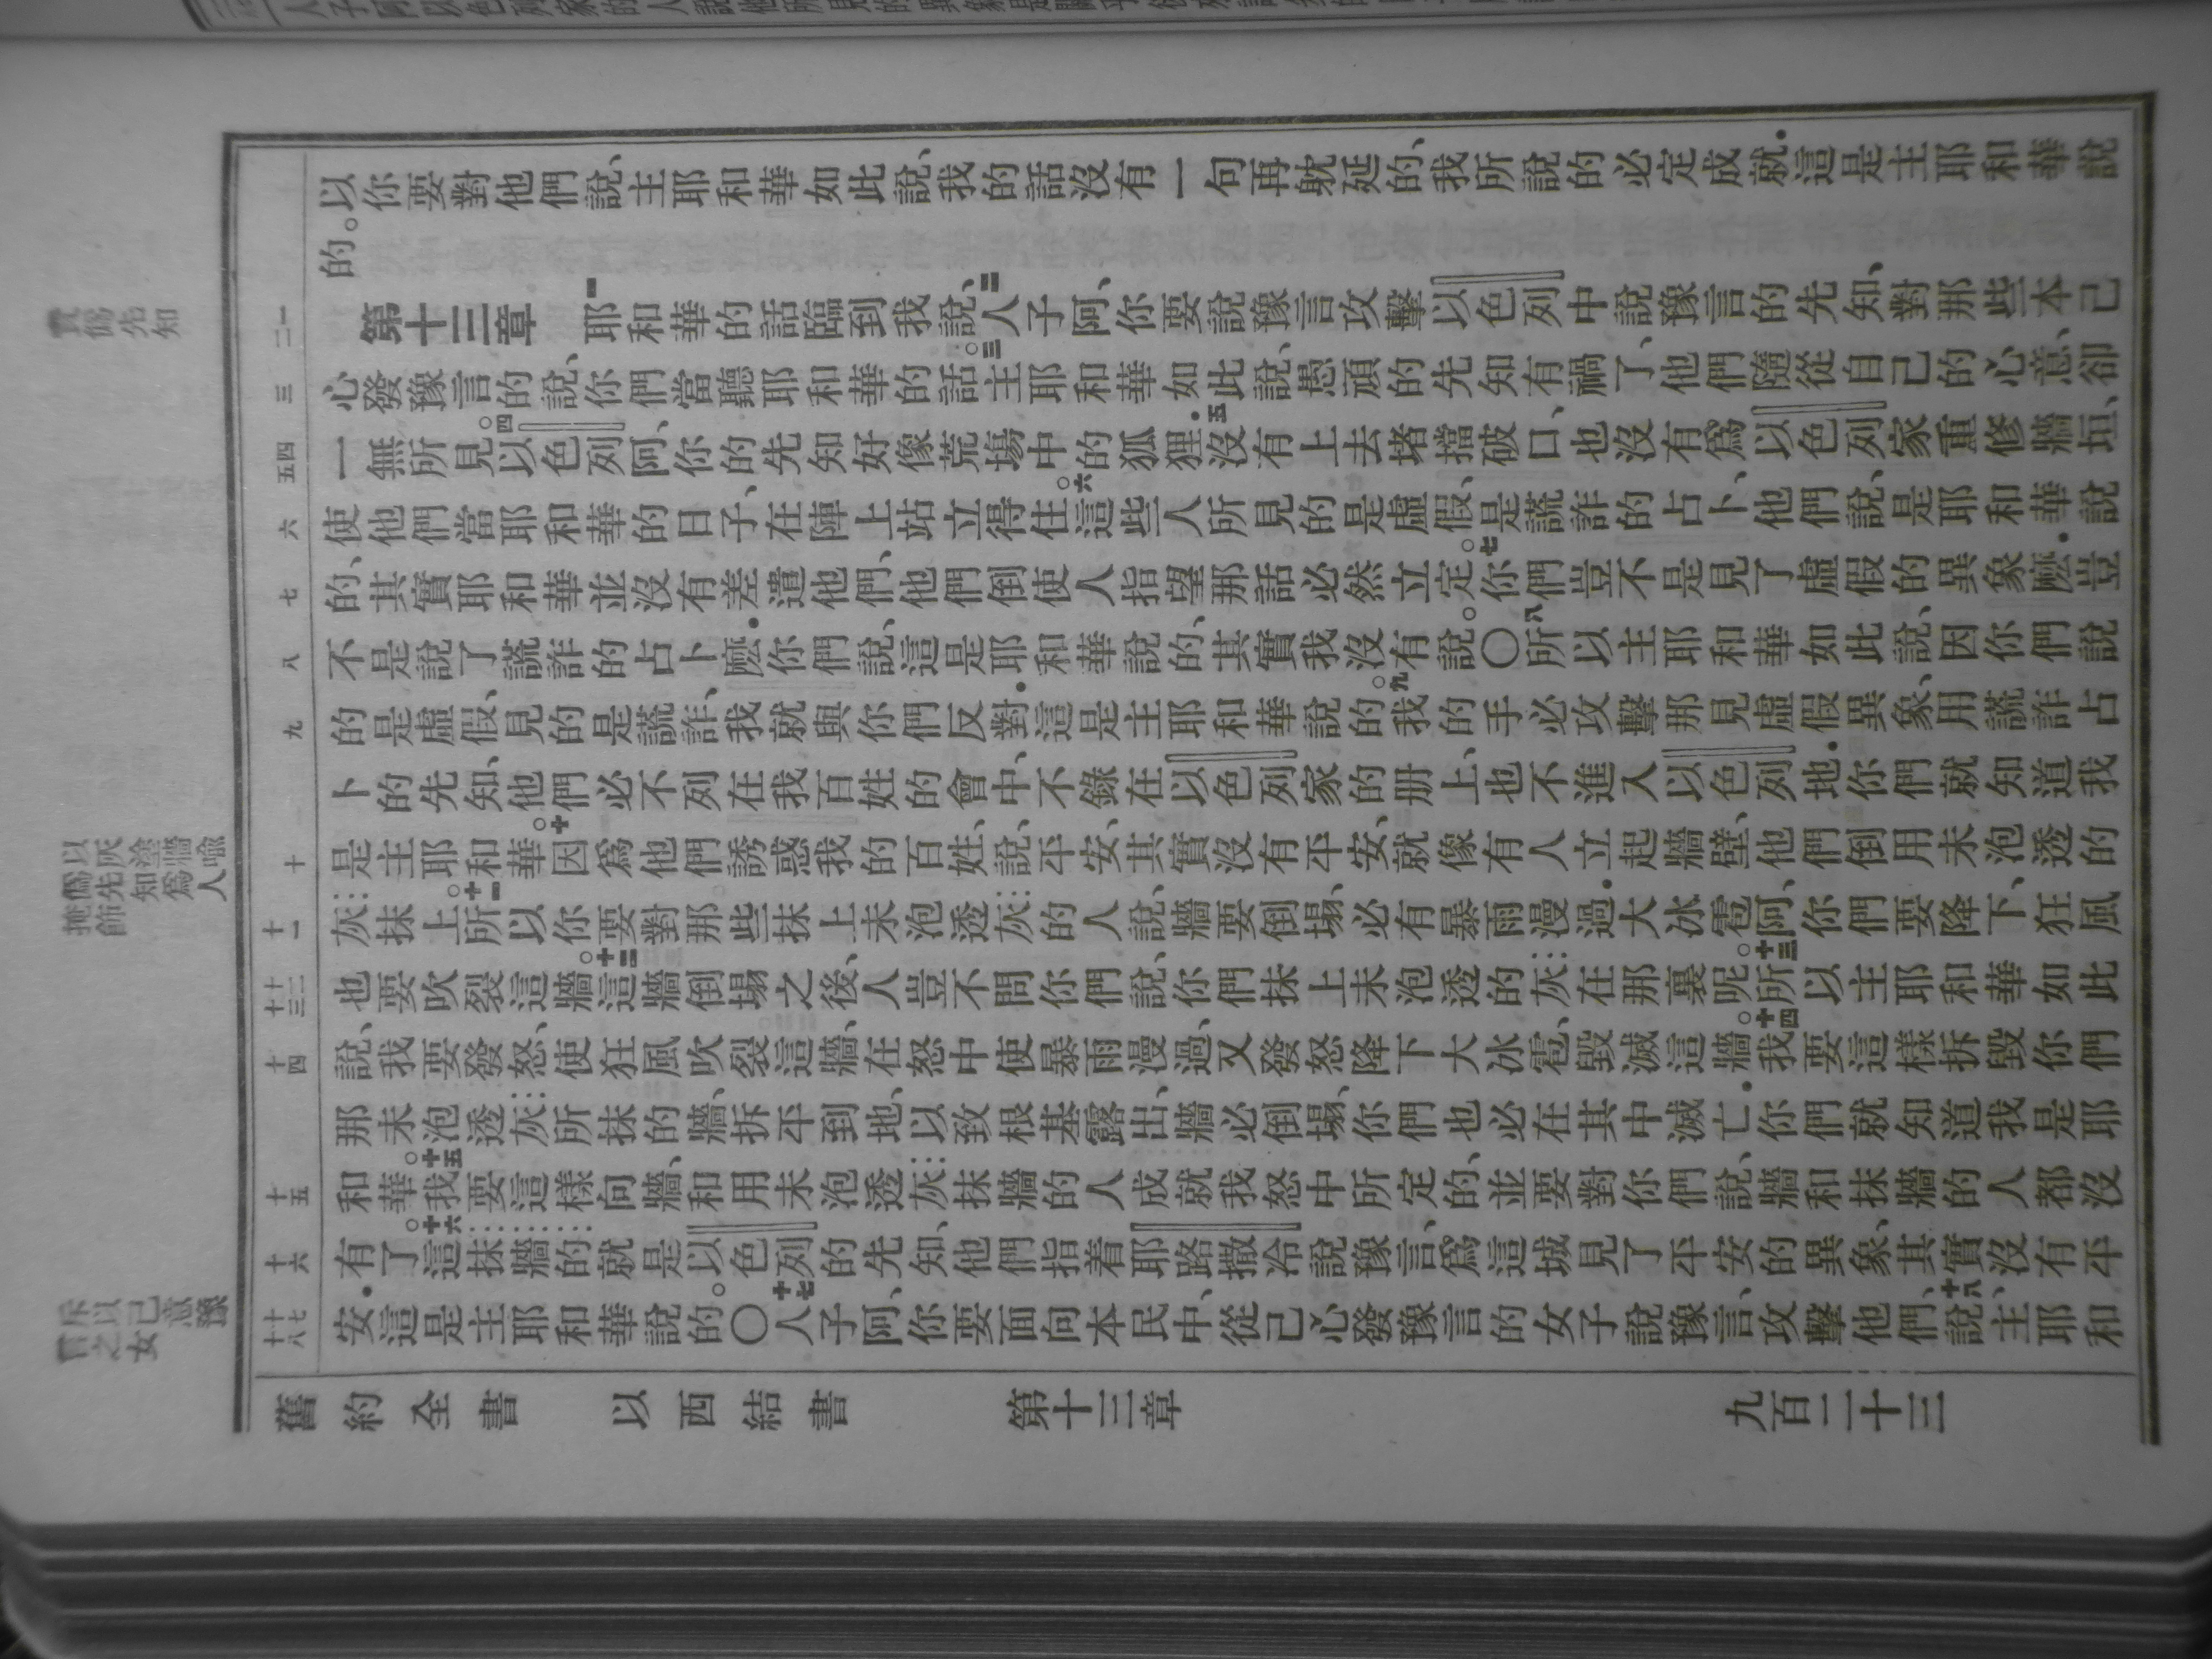 以你要對他們說、主耶和華如此說、我的話沒有一句再躭延的、我所說的必定成就．這是主耶和華說
的。
第十三章 一耶和華的話臨到我說、二人子阿、你要說豫言攻擊以色列中說豫言的先知、對那些本己
心發豫言的說、你們當聽耶和華的話。三主耶和華如此說、愚頑的先知有禍了、他們隨從自己的心意、卻
一無所見。四以色列阿、你的先知好像荒場中的狐狸．五沒有上去堵擋破口、也沒有爲以色列家重修牆垣、
使他們當耶和華的日子、在陣上站立得住。六這些人所見的是虛假、是謊詐的占卜、他們說、是耶和華說
的、其實耶和華並沒有差遣他們、他們倒使人指望那話必然立定。七你們豈不是見了虛假的異象麽．豈
不是說了謊詐的占卜麽．你們說、這是耶和華說的、其實我沒有說。〇八所以主耶和華如此說、因你們說
的是虛假、見的是謊詐、我就與你們反對．這是主耶和華說的。九我的手必攻擊那見虛假異象、用謊詐占
卜的先知、他們必不列在我百姓的會中、不錄在以色列家的册上、也不進入以色列地．你們就知道我
是主耶和華。十因爲他們誘惑我的百姓、說、平安、其實沒有平安、就像有人立起牆壁、他們倒用未泡透的
灰抹上。十一所以你要對那些抹上未泡透灰的人說、牆要倒塌、必有暴雨漫過．大冰雹阿、你們要降下、狂風
也要吹裂這牆。十二這牆倒塌之後、人豈不問你們說、你們抹上未泡透的灰在那裏呢。十三所以主耶和華如此
說、我要發怒、使狂風吹裂這牆、在怒中使暴雨漫過、又發怒降下大冰雹、毀滅這牆。十四我要這樣拆毀你們
那未泡透灰所抹的牆、拆平到地、以致根基露出、牆必倒塌、你們也必在其中滅亡．你們就知道我是耶
和華。十五我要這樣向牆、和用未泡透灰抹牆的人成就我怒中所定的、並要對你們說、牆和抹牆的人都沒
有了．十六這抹牆的就是以色列的先知、他們指着耶路撒冷說豫言、爲這城見了平安的異象、其實沒有平
安．這是主耶和華說的。〇十七人子阿、你要面向本民中、從己心發豫言的女子說豫言、攻擊他們、十八說、主耶和
舊約全書 以西結書 第十三章 九百二十三
一二
三
四五
六
七
八
九
十
十一
十二十三
十四
十五
十六
十七十八
責僞先知
以灰塗牆喩人僞先知爲掩飾
斥以己意豫責之女